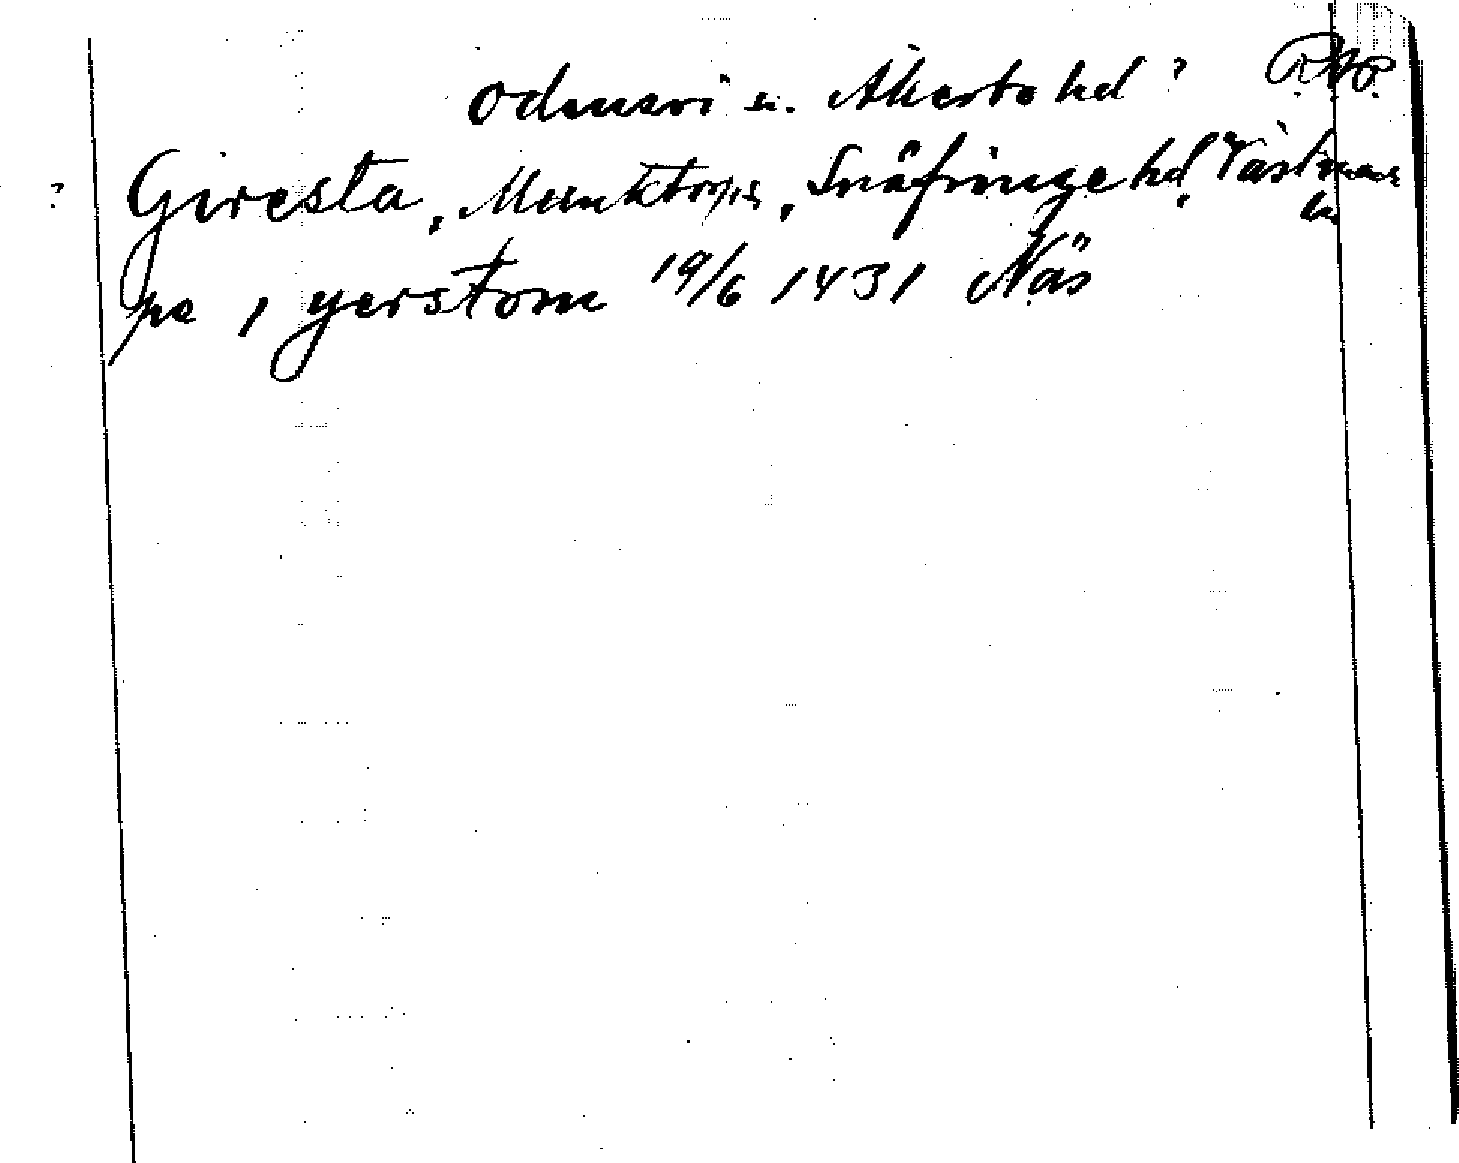 Odensvi sn. Åkerbo hd ?
? Giresta, Munktorps, Snäfringe hd, Västman
ln
pe i gerstom 19/6 1431 Näs